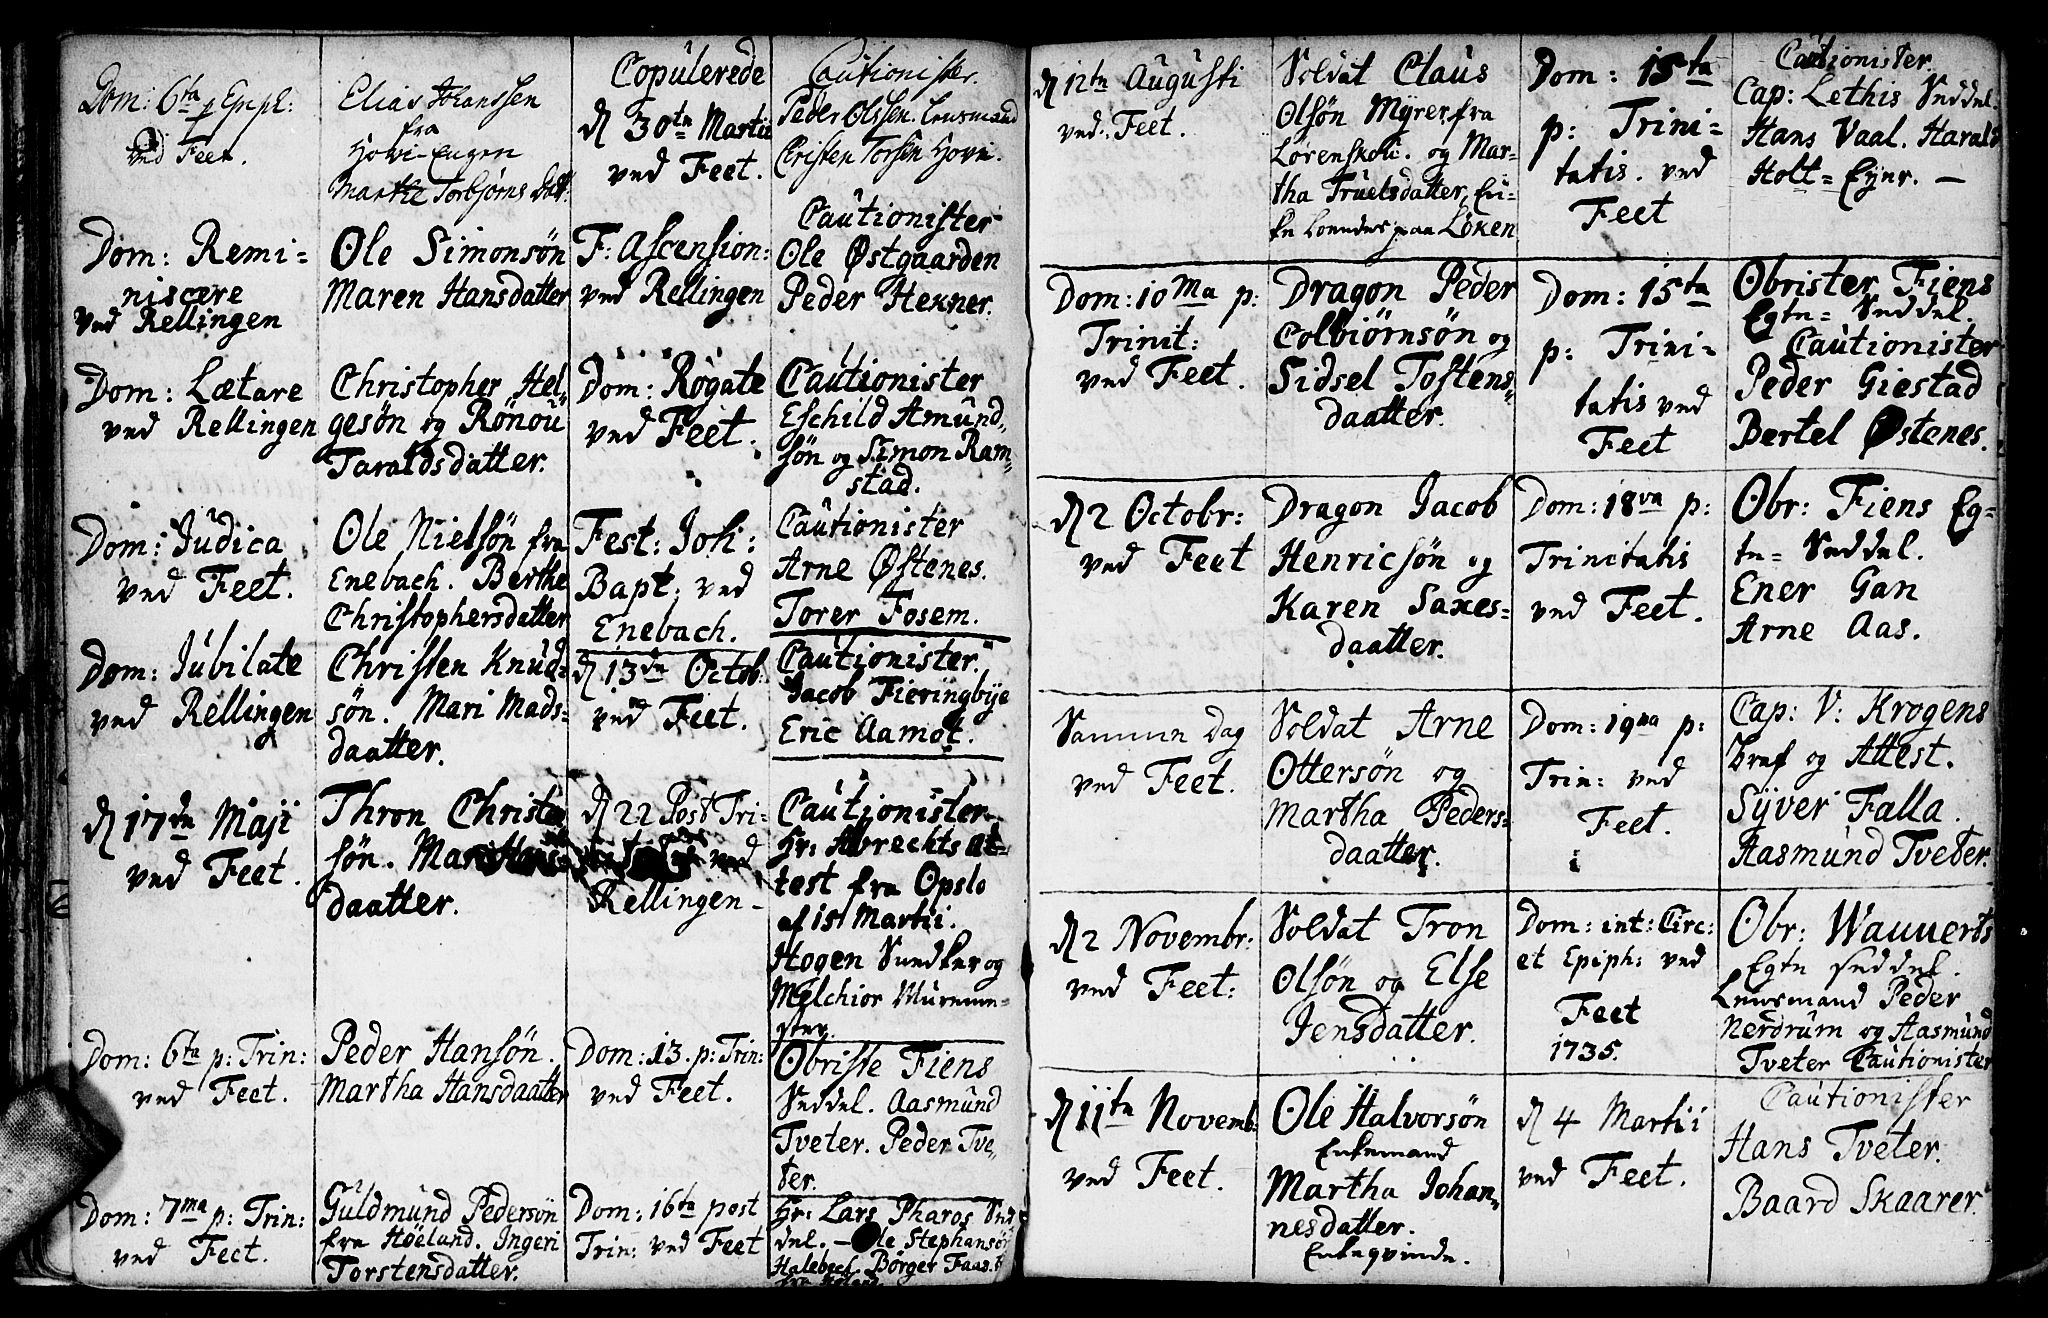 Dom: 6ta p Epiph:
ved Feet.
Elias Johanssen
fra
Hovi-Eugen
Marthe Torbjørns Datt:
Copulerede
d 30te Martii
ved Feet.
Cautionister.
Peder Olssen. Lensmand
Christen Torsen Hovi.
Dom: Remi=
niscere
ved Rellingen
Ole Simonsøn
Maren Hansdatter
F: Ascension:
ved Rellingen
Cautionister
Ole Østgaarden
Peder Hexner.
Dom: Lætare
ved Rellingen
Christopher Hel=
gesøn og Rønou
Taraldsdatter.
Dom: Rogate
ved Feet.
Cautionister
Eschild Amund=
søn og Simon Ram=
stad.
Dom: Judica
ved Feet.
Ole Nielsøn fra
Enebach. Berthe
Christophersdatter
Fest: Joh:
Bapt: ved
Enebach.
Cautionister
Arne Østenes.
Torer Fosem.
Dom: Jubilate
ved Rellingen
Christen Knud=
søn. Mari Mads=
daatter.
d 13de Octob:
ved Feet.
Cautionister.
Jacob Fieringbye
Eric Aamot.
d 17de Maji
ved Feet.
Thron Christen
søn. Mari Hans=
daatter.
d 22 Post Tri=
ved
Rellingen
Cautionister
Hr: Abrechts at=
test fra Opslo
af 15 Martii.
Hogen Snedker og
Melchior Mureme=
ster.
Dom: 6ta p: Trin:
ved Feet.
Peder Hansøn.
Martha Hansdaatter
Dom: 13. p: Trin:
ved Feet.
Obriste Fiens
Seddel. Aasmund
Tveter. Peder Tve=
ter.
Dom: 7ma p: Trin:
ved Feet.
Guldmund Pedersøn
fra Høeland. Ingeri
Torstensdatter.
Dom: 16ta post
Trin: ved Feet
Hr: Lars Pharos Sed
del. - Ole Stephansøn
Halebech Børger Faas
fra Høland
d 12te Augusti
ved: Feet.
Soldat Claus
Olsøn Myrer fra
Lørenskou. og Mar=
tha Truelsdatter, En=
ke Loender paa Løken
Dom: 15ta
p: Trini=
tatis. ved
Feet
Cautionister
Cap: Lethis Seddel.
Hans Vaal. Harald
Holt= Eyer. —
Dom: 10ma p:
Trinit:
ved Feet.
Dragon Peder
Colbiørnsøn og
Sidsel Tostens=
daatter.
Dom: 15ta
p: Trini=
tatis ved
Feet
Obrister Fiens
Egte= Seddel.
Cautionister
Peder Giestad
Bertel Østenes.
d 2 Octobr:
ved Feet
Dragon Jacob
Henricsøn og
Karen Saxes=
daatter.
Dom: 18va p:
Trinitatis
ved Feet.
Obr: Fiens Eg=
te= Seddel.
Ener Gan
Arne Aas.
Samme Dag
ved Feet.
Soldat Arne
Ottersøn og
Martha Peders=
daatter.
Dom: 19na p:
Trin: ved
Feet.
Cap: V: Krogens
Bref og Attest.
Syver Falla.
Aasmund Tveter.
d 2 Novembr:
ved Feet:
Soldat Tron
Olsøn og Else
Jensdatter.
Dom: int: Circ:
et Epiph: ved
Feet
1735.
Obr: Wauuerts
Egte seddel.
Lensmand Peder
Nerdrum og Aasmund
Tveter Cautionister
d 11te Novemb:
ved Feet.
Ole Halvorsøn
Enkemand
Martha Johan=
nesdatter.
Enkeqvinde.
d 4 Martii
ved Feet.
Cautionister
Hans Tveter.
Baard Skaarer.